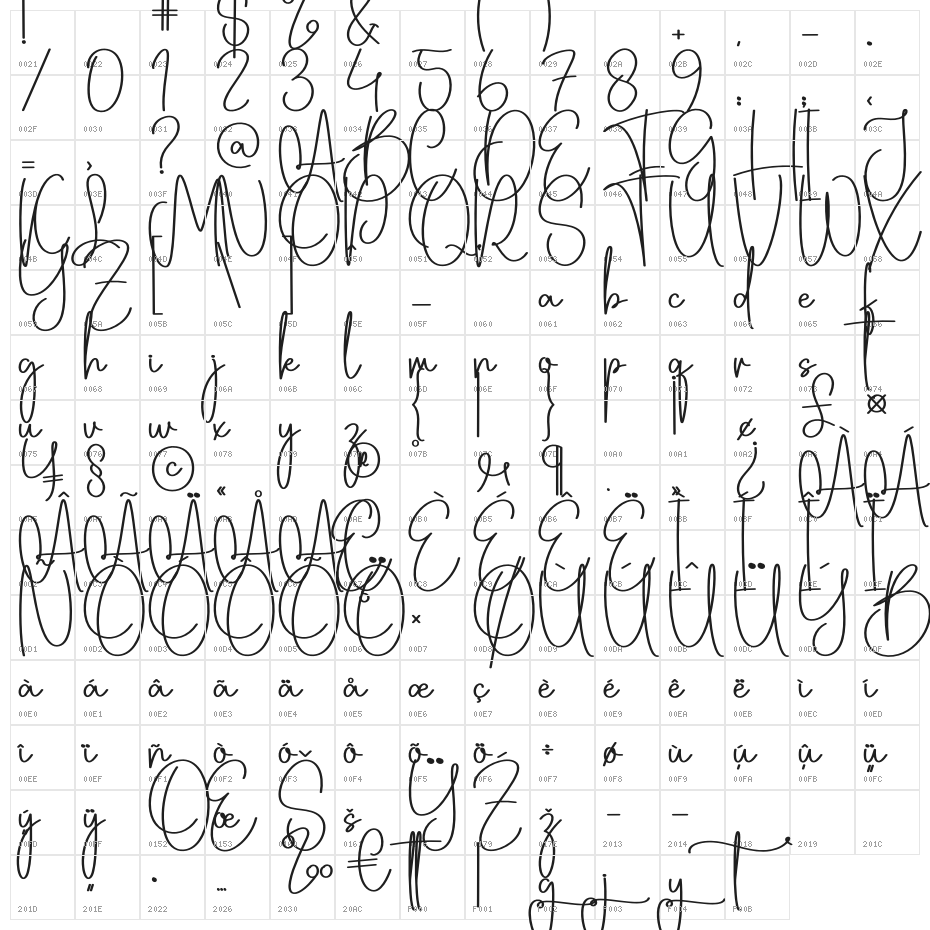 ! # $ % & ( ) + , - .
0021 0022 0023 0024 0025 0026 0027 0028 0029 002A 002B 002C 002D 002E
/ 0 1 2 3 4 5 6 7 8 9 : ; <
002F 0030 0031 0032 0033 0034 0035 0036 0037 0038 0039 003A 003B 003C
= > ? @ A B C D E F G H I J
003D 003E 003F 0040 0041 0042 0043 0044 0045 0046 0047 0048 0049 004A
K L M N O P Q R S T U V W X
004B 004C 004D 004E 004F 0050 0051 0052 0053 0054 0055 0056 0057 0058
Y Z [ \ ] ^ _ a b c d e f
0059 005A 005B 005C 005D 005E 005F 0060 0061 0062 0063 0064 0065 0066
g h i j k l m n o p q r s t
0067 0068 0069 006A 006B 006C 006D 006E 006F 0070 0071 0072 0073 0074
u v w x y z { | } ¡ ¢ £ ¤
0075 0076 0077 0078 0079 007A 007B 007C 007D 00A0 00A1 00A2 00A3 00A4
¥ § © « ® ° µ ¶ · » ¿ À Á
00A5 00A7 00A9 00AB 00AD 00AE 00B0 00B5 00B6 00B7 00BB 00BF 00C0 00C1
Â Ã Ä Å Æ Ç È É Ê Ë Ì Í Î Ï
00C2 00C3 00C4 00C5 00C6 00C7 00C8 00C9 00CA 00CB 00CC 00CD 00CE 00CF
Ñ Ò Ó Ô Õ Ö × Ø Ù Ú Û Ü Ý ß
00D1 00D2 00D3 00D4 00D5 00D6 00D7 00D8 00D9 00DA 00DB 00DC 00DD 00DF
à á â ã ä å æ ç è é ê ë ì í
00E0 00E1 00E2 00E3 00E4 00E5 00E6 00E7 00E8 00E9 00EA 00EB 00EC 00ED
î ï ñ ò ó ô õ ö ÷ ø ù ú û ü
00EE 00EF 00F1 00F2 00F3 00F4 00F5 00F6 00F7 00F8 00F9 00FA 00FB 00FC
ý ÿ Œ œ Š š Ÿ Ž ž – —
00FD 00FF 0152 0153 0160 0161 0178 0179 017E 2013 2014 2018 2019 201C
„ • … ‰ €
201D 201E 2022 2026 2030 20AC F000 F001 F002 F003 F004 F00B